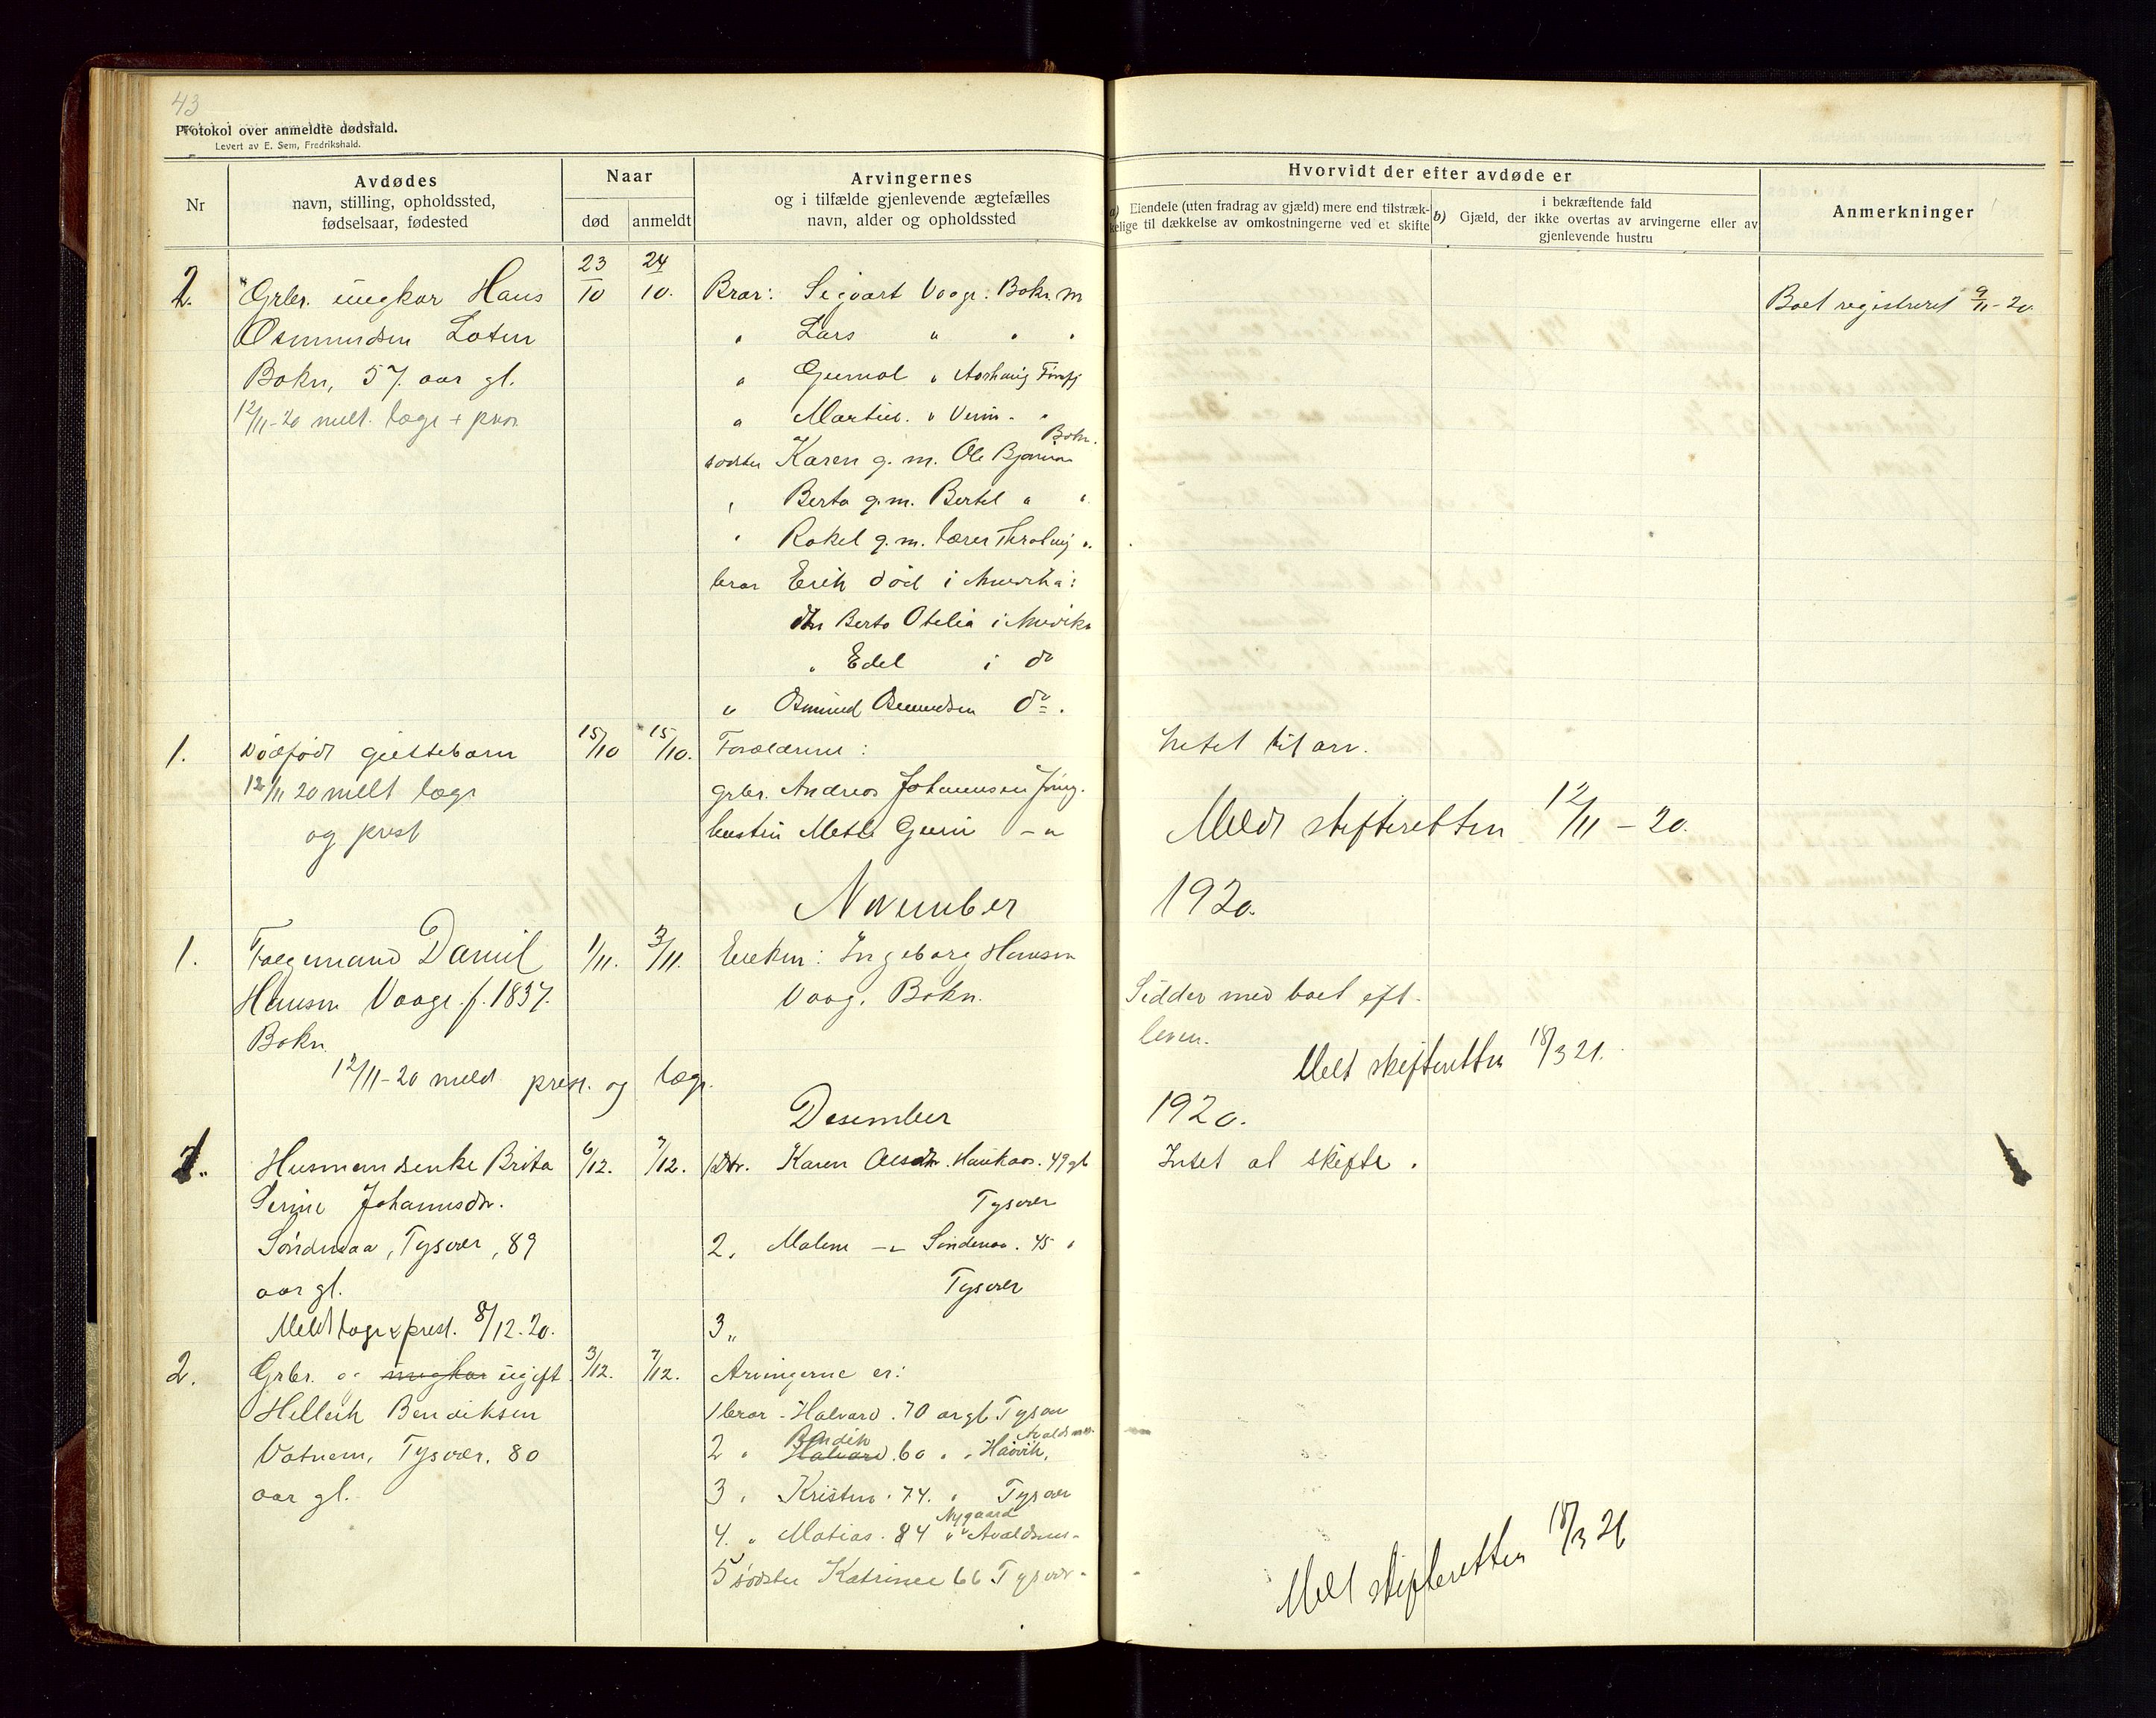 43
Protokol over anmeldte dødsfald.
Levert av E. Sem, Fredrikshald.
Nr
Avdødes
navn, stilling, opholdssted,
fødselsaar, fødested
Naar
død
anmeldt
Arvingernes
og i tilfælde gjenlevende ægtefælles
navn, alder og opholdssted
Hvorvidt der efter avdøde er
a) Eiendele (uten fradrag av gjæld) mere end tilstræk-
kelige til dækkelse av omkostningerne ved et skifte
i bekræftende fald
b) Gjæld, der ikke overtas av arvingerne eller av
gjenlevende hustru
Anmerkninger
2. Grbr. ungkar Hans 23/10 24/10. Bror: Sigvart Vaage. Bokn Boet registreret 9/11-20.
Osmundsen Loten " Lars " " "
Bokn, 57 aar gl. " Gunval "
12/11-20 melt. læge + " Martin. "
Bokn.
søster Karen g. m. Ole
" Berta g.m. Bertel " "
" Rakel g.m. lærer "
bror Erik død i Amerika:
dtr Berta Otelia i Amerika
" Edel i do
" Osmund Osmundsen do.
1. Dødfødt guttebarn 15/10 15/10. Forældrene: Intet til arv.
12/11 20 melt læge grbr. Andreas Johannesen
og prest hustru Mette Guri - " Meldt skifteretten 12/11-20.
November 1920.
1. Følgemand Daniel 1/11. 3/11. Enken: Ingeborg Hansen
Hansen Vaage f. 1837. Vaag. Bokn. Sidder med boet eft.
Bokn leven.
12/11-20 meld prest. og læge. Melt skifteretten 18/3 21.
Desember 1920.
1. Husmandsenke Brita 6/12. 7/12. 1 Dtr. Karen 49 gl Intet at skifte.
Serine Johannesdr. Tysvær
Søndenaa, Tysvær, 89 2. Malene - " - Søndenaa. 45 "
aar gl. Tysvær
Meldt læge & prest. 8/12. 20. 3 "
2. Grbr. og ungkar ugift 3/12. 7/12. Arvingerne er:
Helleik Bendiksen 1 bror - Halvard. 70 argl. Tysvær
Bendik Avaldsnes
Vatnem, Tysvær. 80 2 " Halvard. 60 " " Håvik.
aar gl. 3 " Kristen. 74. " Tysvær
Nygaard
4. " Matias. 84 " " Avaldsnes
5 søster Katrine 66 Tysvær.
Melt skifteretten 18/3 21